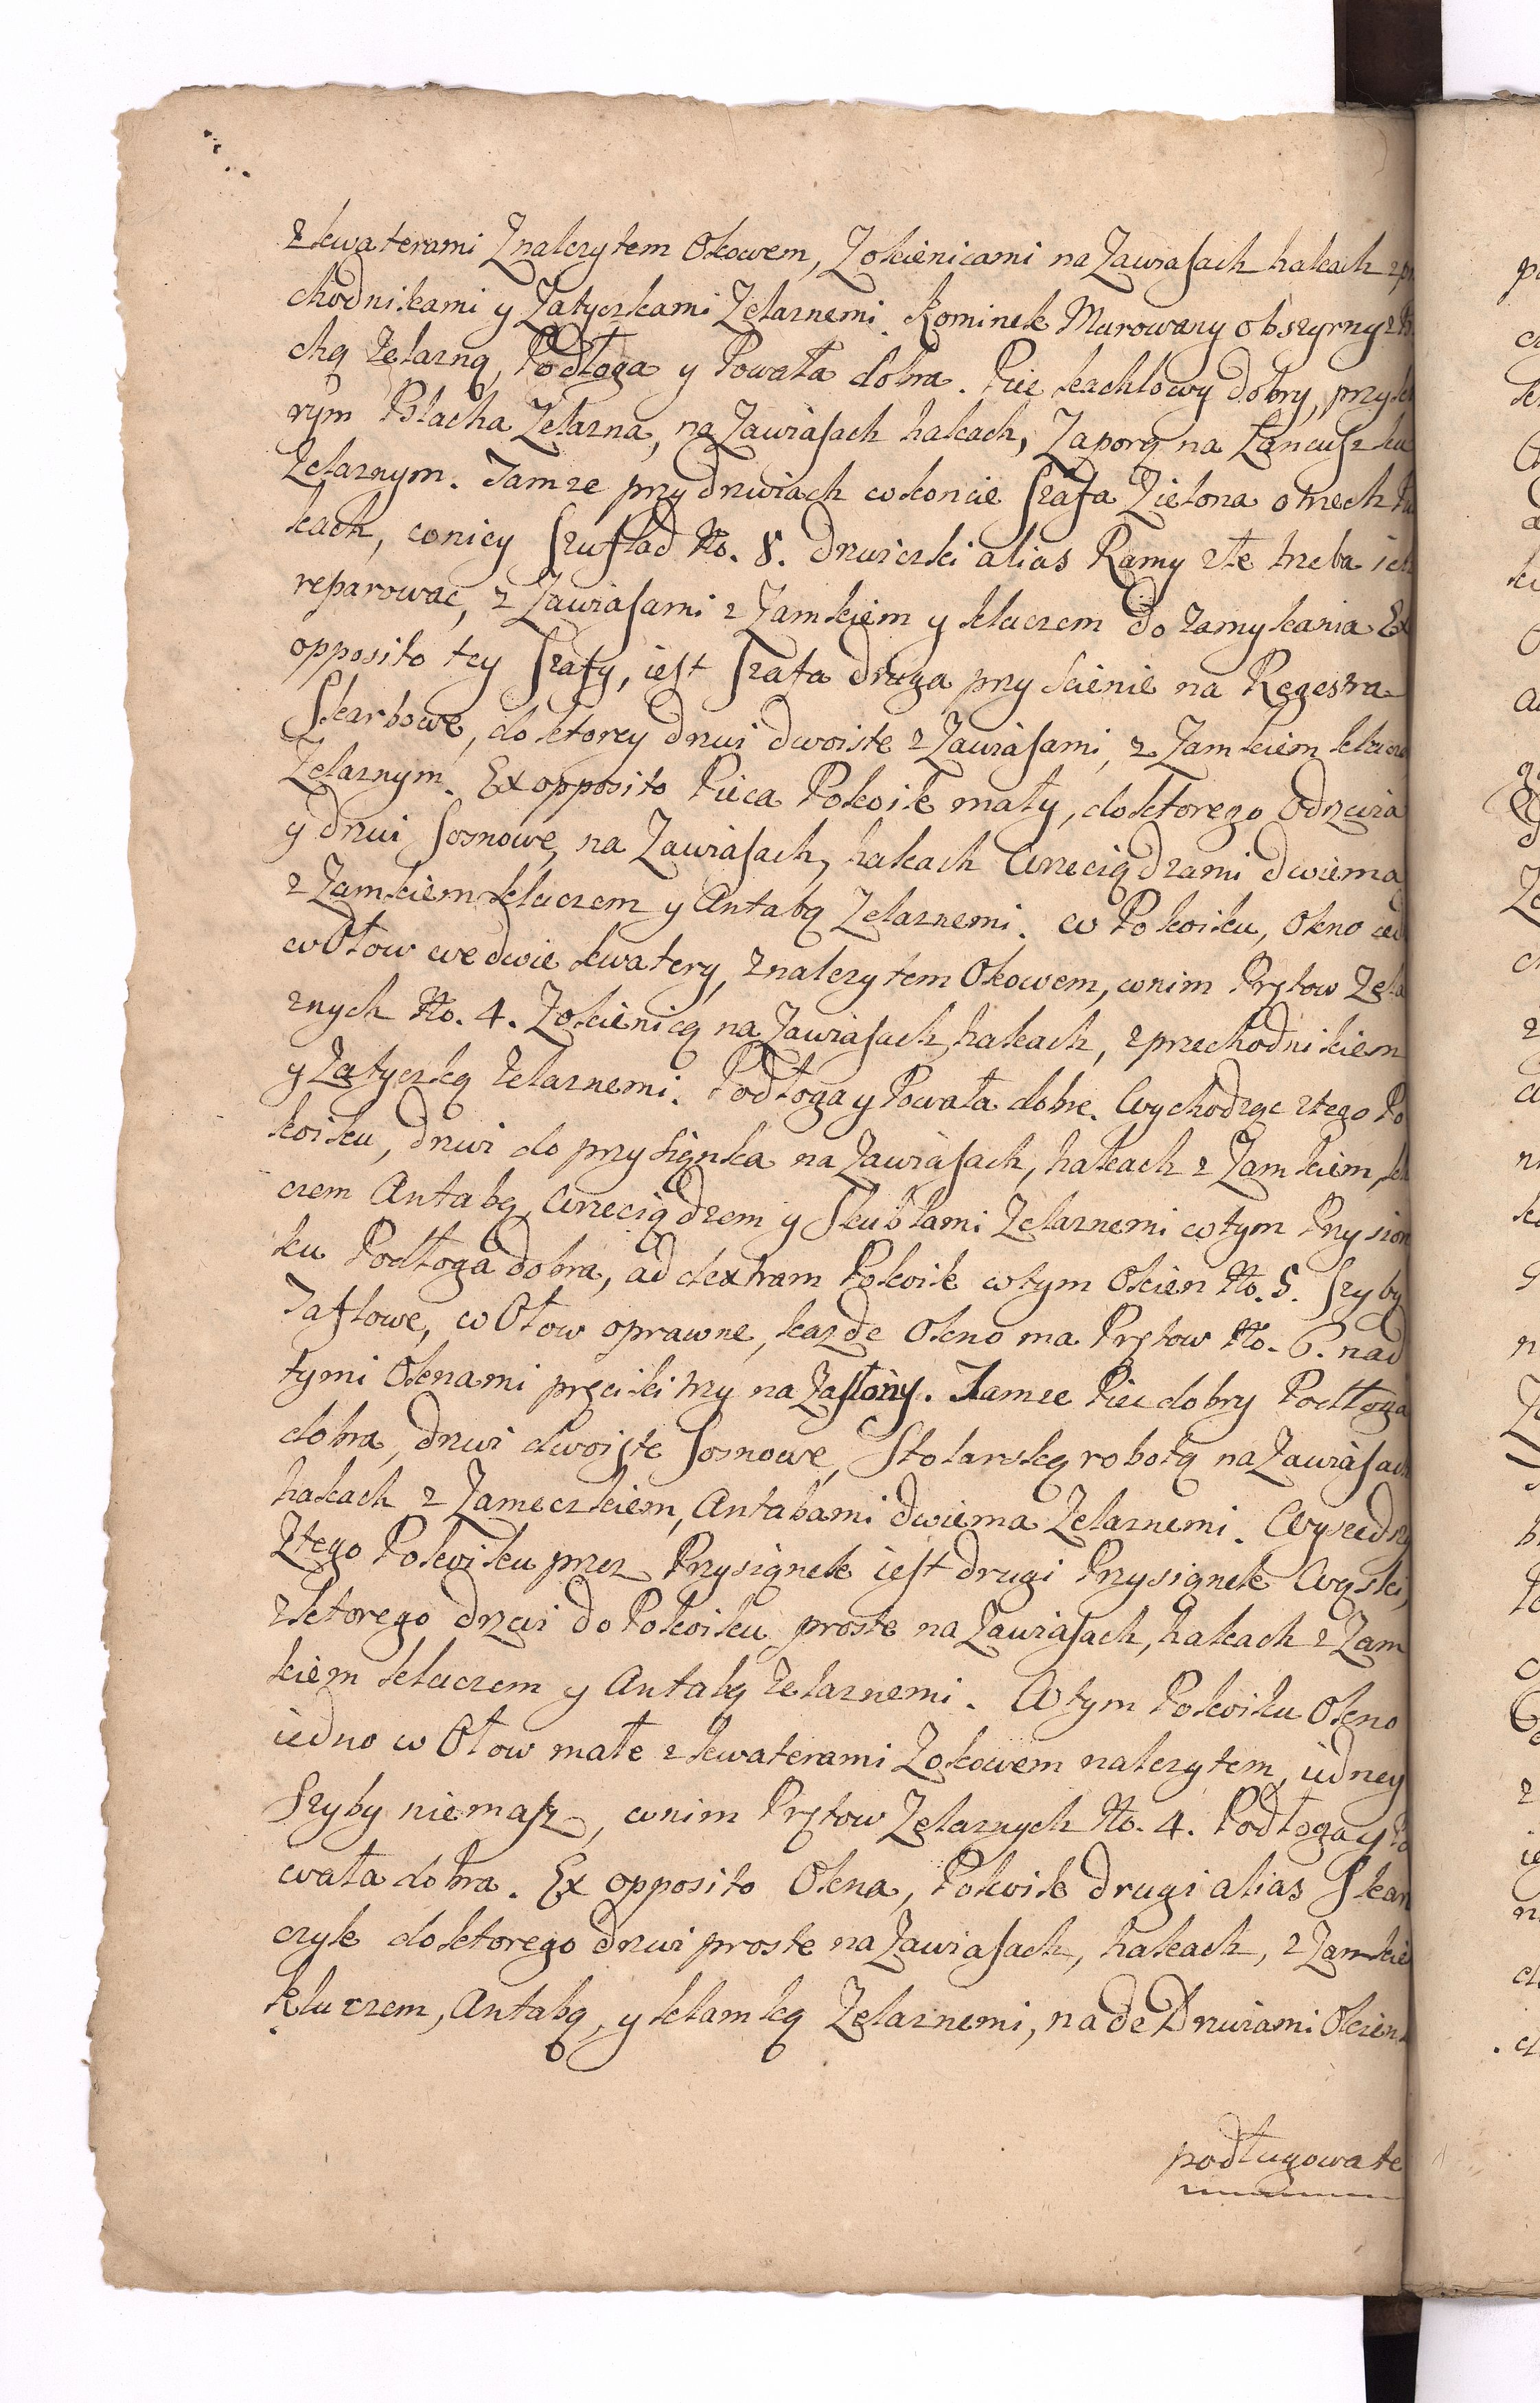 z kwaterami Z nalezytem Okowem, Z okienicami na Zawiasach hakach z
chodnikami y Zatyczkami Zelaznemi. Kominek Murowany obszyrny z
chą zelazną, Podłoga y Powała dobra. Piec kachlowy dobry, przy
rym Blacha Zelazna, na Zawiasach hakach, Zaporą na Łancuszku
Zelaznym. Tamze przy drzwiach w koncie Szafa Zielona o trzech
kach, w niey Szuflad No. 8. drzwiczki alias Ramy złe trzeba ich
reparowac, z Zawiasami z Zamkiem y kluczem do zamykania Ex
opposito tey Szafy, iest Szafa druga przy scienie na Regestra
Skarbowe, do ktorey drzwi dwoiste z Zawiasami, z Zamkiem
Zelaznym. Ex opposito Pieca Pokoik mały, do ktorego Odrzwia
y drzwi Sosnowe, na Zawiasach, hakach Wrzeciądzami dwiema
z Zamkiem kluczem y Antabą Zelaznemi. w Pokoiku, Okno
w Ołow we dwie kwatery, z nalezytem Okowem, w nim Prętow Zela
znych No. 4. Z okienicą na Zawiasach hakach, z przechodnikiem
y Zatyczką zelaznemi. Podłoga y Powała dobre. Wychodząc z tego Po
koiku, drzwi do przysiąnka na Zawiasach, hakach z Zamkiem,
czem Antabą, Wrzeciądzem y Skublami Zelaznemi w tym Przysion
ku Podłoga dobra, ad dextram Pokoik w tym Okien No. 5. Szyby
Taflowe, w Ołow oprawne, kazde Okno ma Prętow No. 6. nad
tymi Oknami pręciki trzy na Zasłony. Tamze Piec dobry Podłoga
dobra, drzwi dwoiste Sosnowe, Stolarską robotą na Zawiasach
hakach z Zameczkiem, Antabami dwiema Zelaznemi. Wyszedszy
Z tego Pokoiku przez Przysiąnek iest drugi Przysiąnek Wąski,
z ktorego drzwi do Pokoiku proste na Zawiasach, hakach z Zam
kiem kluczem y Antabą zelaznemi. W tym Pokoiku Okno
iedno w Ołow małe z kwaterami Z okowem nalezytem, iedney
Szyby niemasz, w nim Prętow Zelaznych No. 4. Podłoga y Po
wała dobra. Ex opposito Okna, Pokoik drugi alias Skar
czyk do ktorego drzwi proste na Zawiasach, hakach, z Zamkie
kluczem, Antabą, y klamką Zelaznemi, nade Drzwiami
podługowate